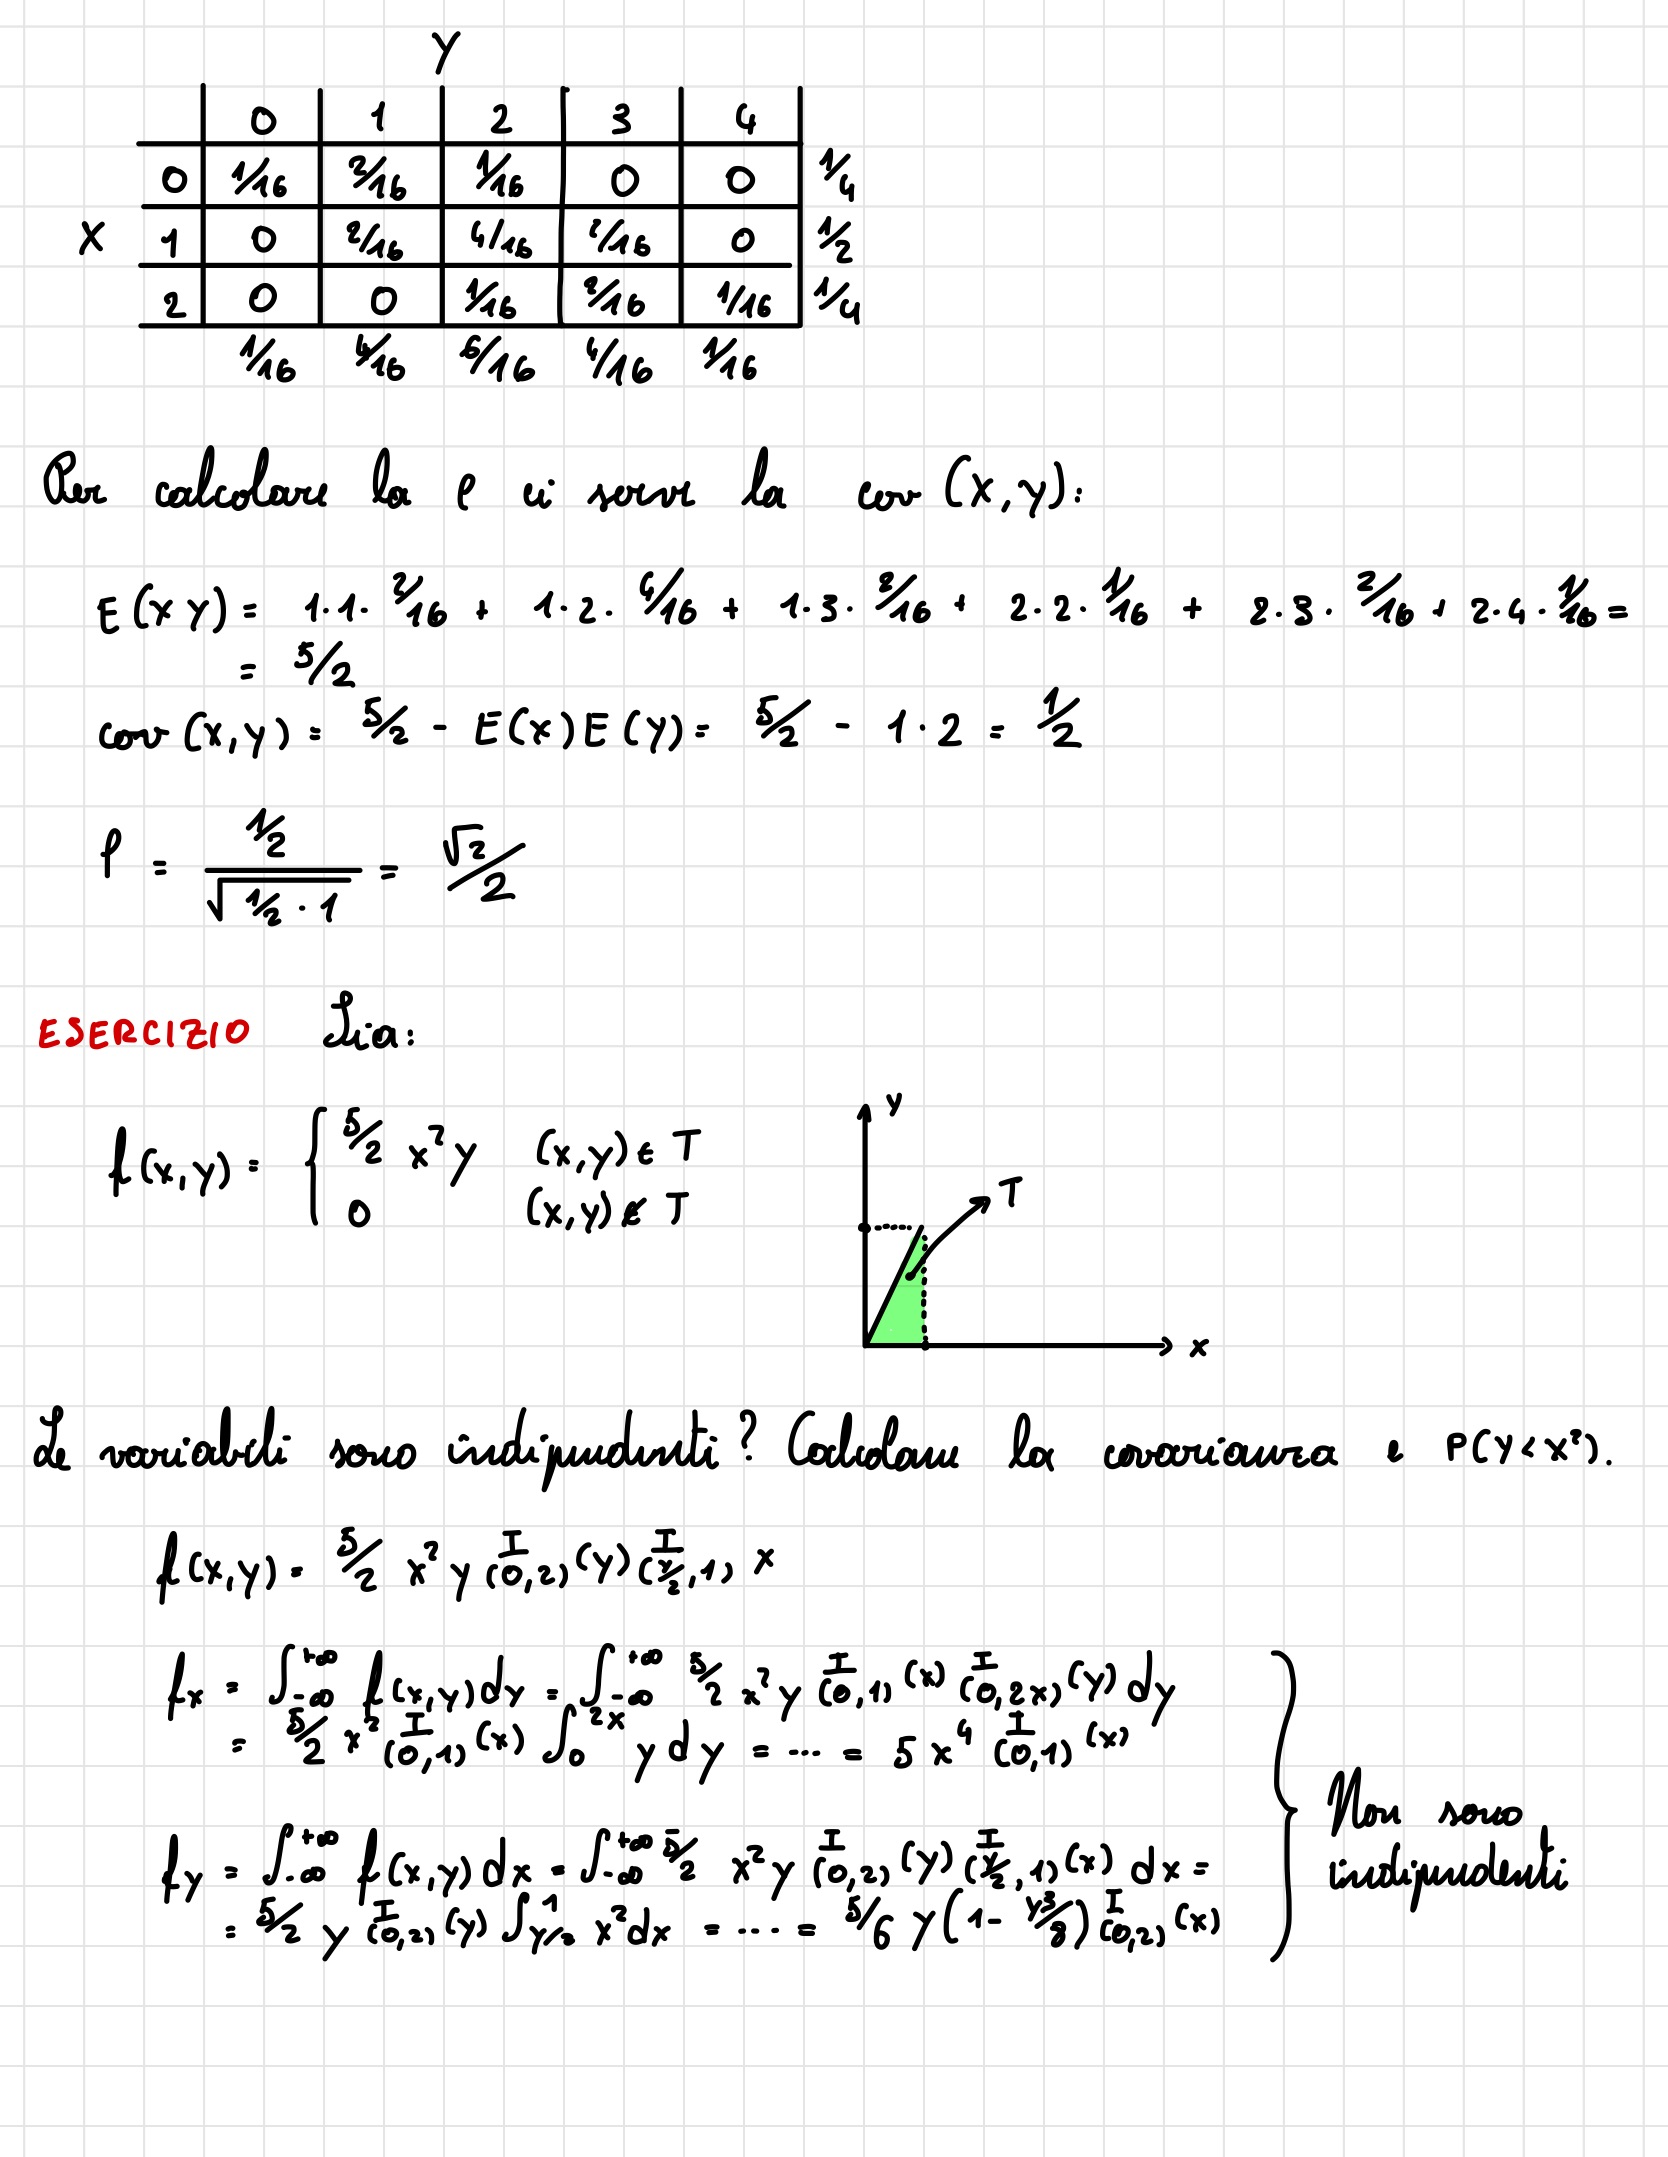 Y
0 1 2 3 4
0 1/16 2/16 1/16 0 0 1/4
X 1 0 2/16 4/16 2/16 0 1/2
2 0 0 1/16 2/16 1/16 1/4
1/16 4/16 6/16 4/16 1/16
Per calcolare la ρ ci serve la cov (X,Y):
E(XY) = 1·1· 2/16 + 1·2· 4/16 + 1·3· 2/16 + 2·2· 1/16 + 2·3· 2/16 + 2·4· 1/16 =
= 5/2
cov (X,Y) = 5/2 - E(X)E(Y) = 5/2 - 1·2 = 1/2
ρ = (1/2)/√(1/2 · 1) = √2/2
ESERCIZIO Sia:
f(x,y) = { 5/2 x²y (x,y) ∈ T
0 (x,y) ∉ T
y
T
x
Le variabili sono indipendenti? Calcolare la covarianza e P(Y < X²).
f(x,y) = 5/2 x² y I(0,2) (y) I(y/2,1) x
fx = ∫-∞+∞ f(x,y)dy = ∫-∞+∞ 5/2 x² y I(0,1) (x) I(0,2x) (y) dy
= 5/2 x² I(0,1) (x) ∫0 2x y dy = ... = 5x⁴ I(0,1) (x)
fy = ∫-∞+∞ f(x,y) dx = ∫-∞+∞ 5/2 x² y I(0,2) (y) I(y/2,1) (x) dx =
= 5/2 y I(0,2) (y) ∫y/2 1 x² dx = .... = 5/6 y (1 - y³/8) I(0,2) (x)
Non sono
indipendenti